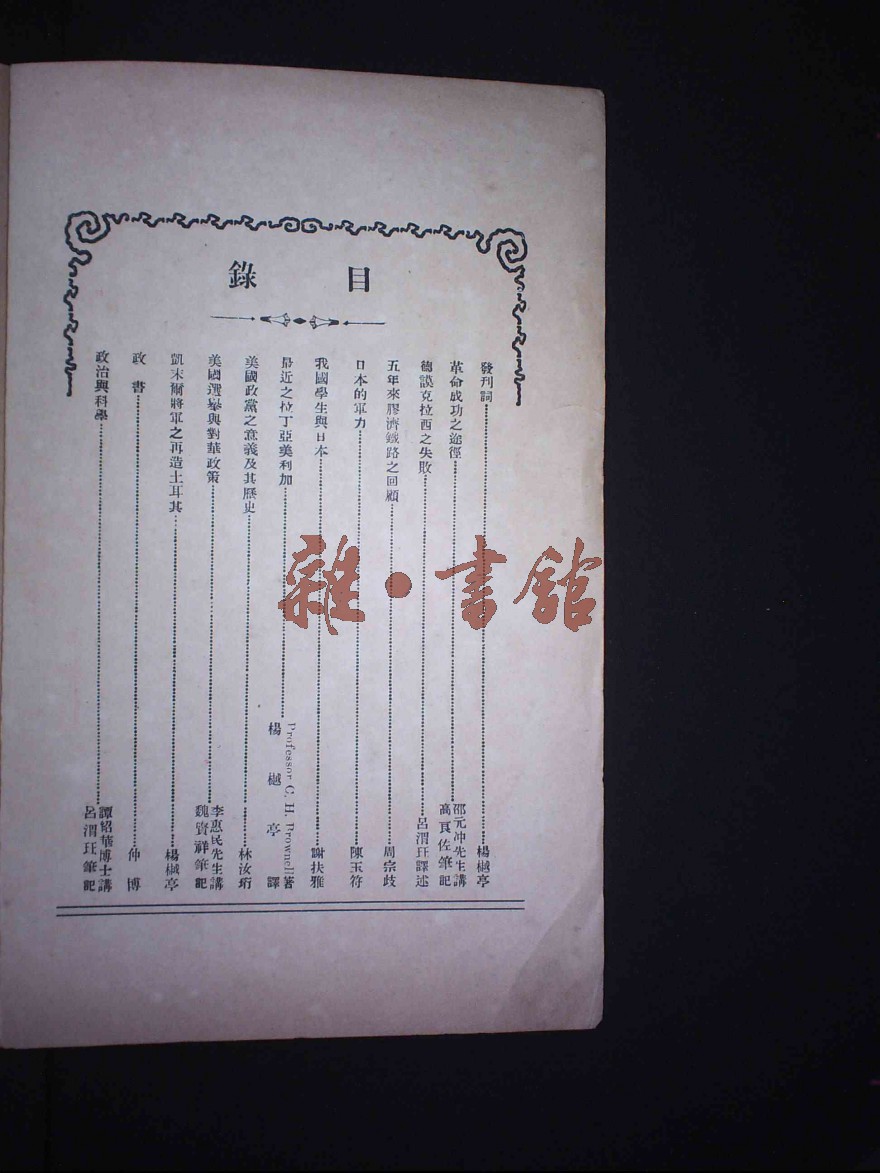 目錄
發刊詞 楊樾亭
革命成功之途徑 邵元冲先生講 高良佐筆記
德謨克拉西之失敗 呂渭玨譯述
五年來膠濟鐵路之回顧 周宗歧
日本的軍力 陳玉符
我國學生與日本 謝扶雅
最近之拉丁亞美利加 Professor C. H. Brownell著 楊樾亭譯
美國政黨之意義及其歷史 林汝珩
美國選舉與對華政策 李惠民先生講 魏賓祥筆記
凱末爾將軍之再造土耳其 楊樾亭
政書 仲博
政治與科學 譚紹華博士講 呂渭玨筆記
雜·書館